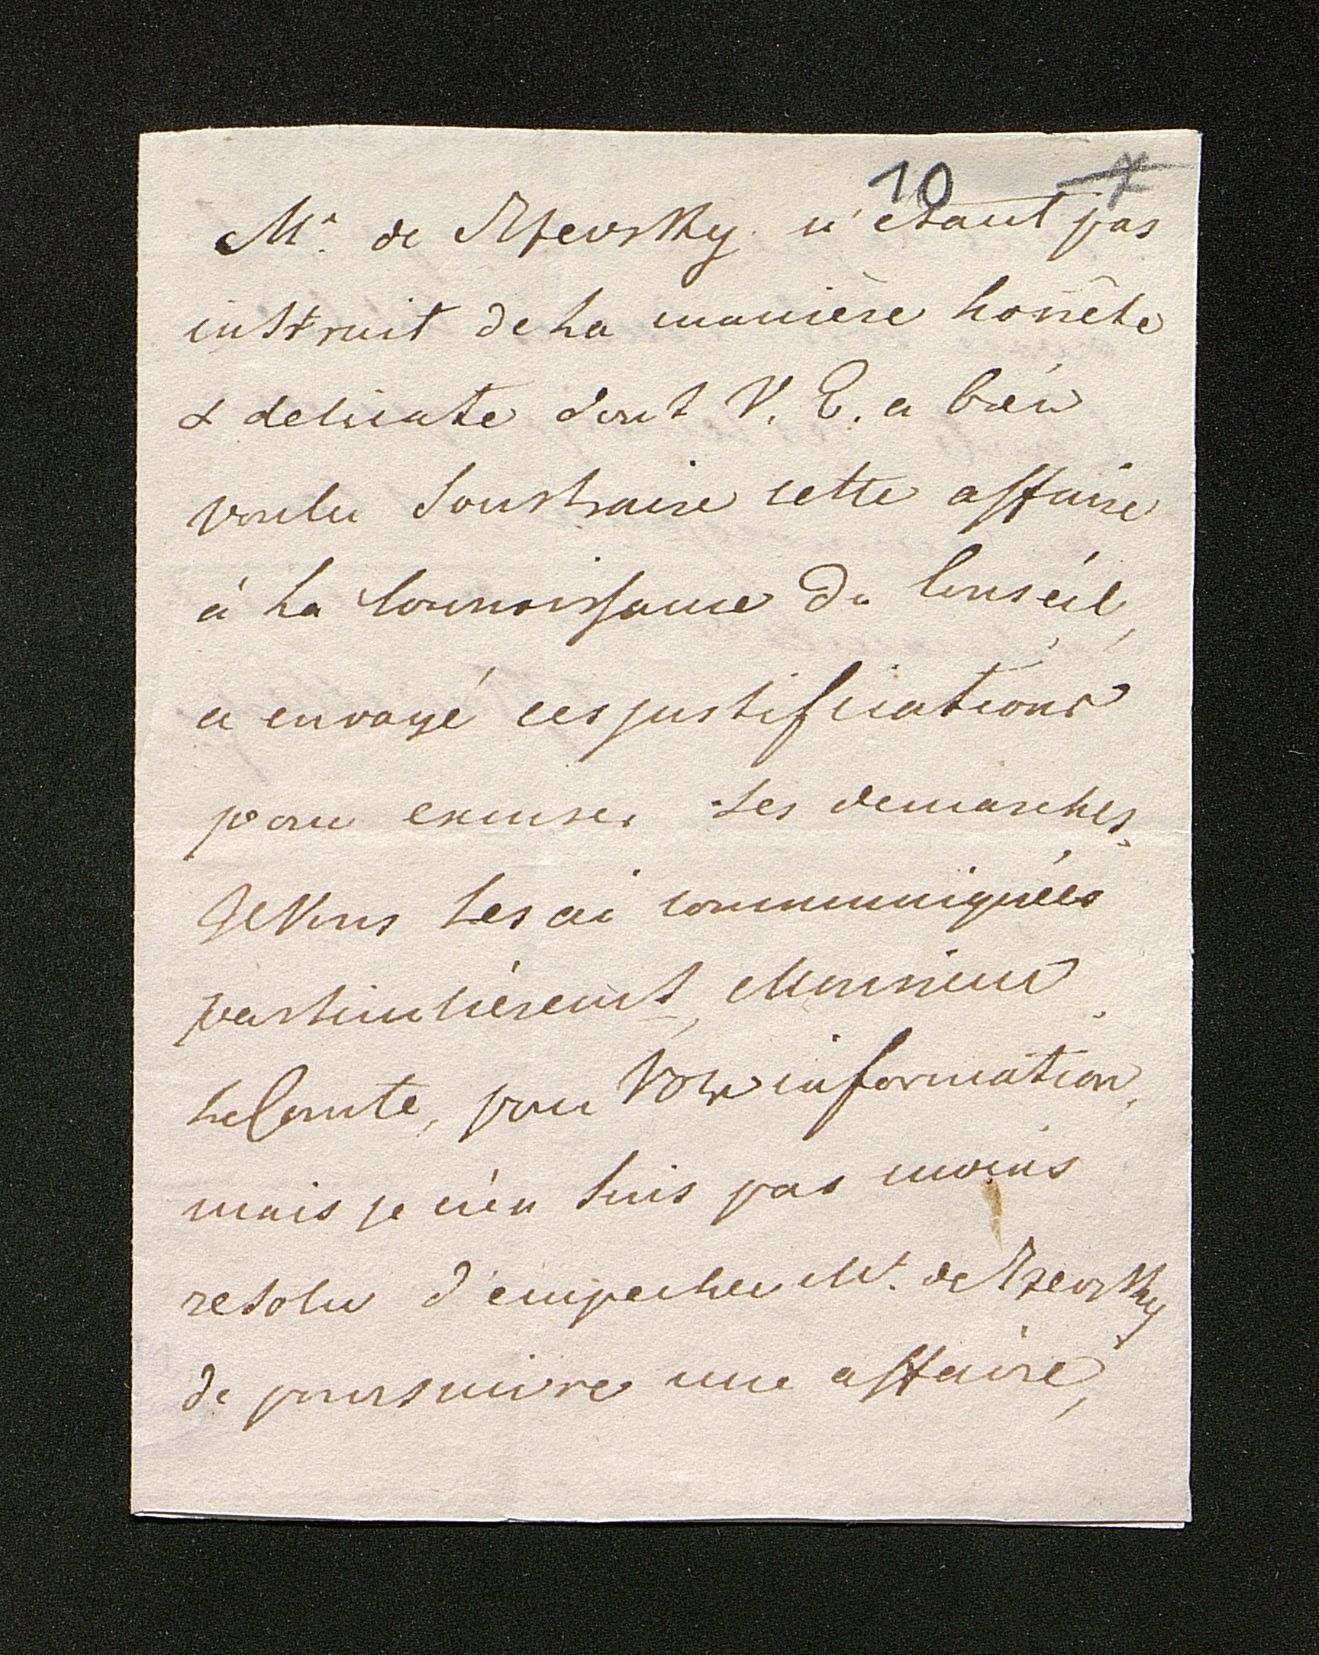 10 7
Mr. de Rjevsky n'etant pas
instruit de la manière honnête
& delicate dont V. E. a bien
voulu soustraire cette affaire
à la connoissance du Conseil,
a envoyé ces justifications
pour excuser ses demarches.
Je Vous les ai communiquées
particulièrement, Monsieur
le Comte, pour Votre information,
mais je n'en suis pas moins
resolu d'empecher Mr. de Rjevsky
de poursuivre une affaire,